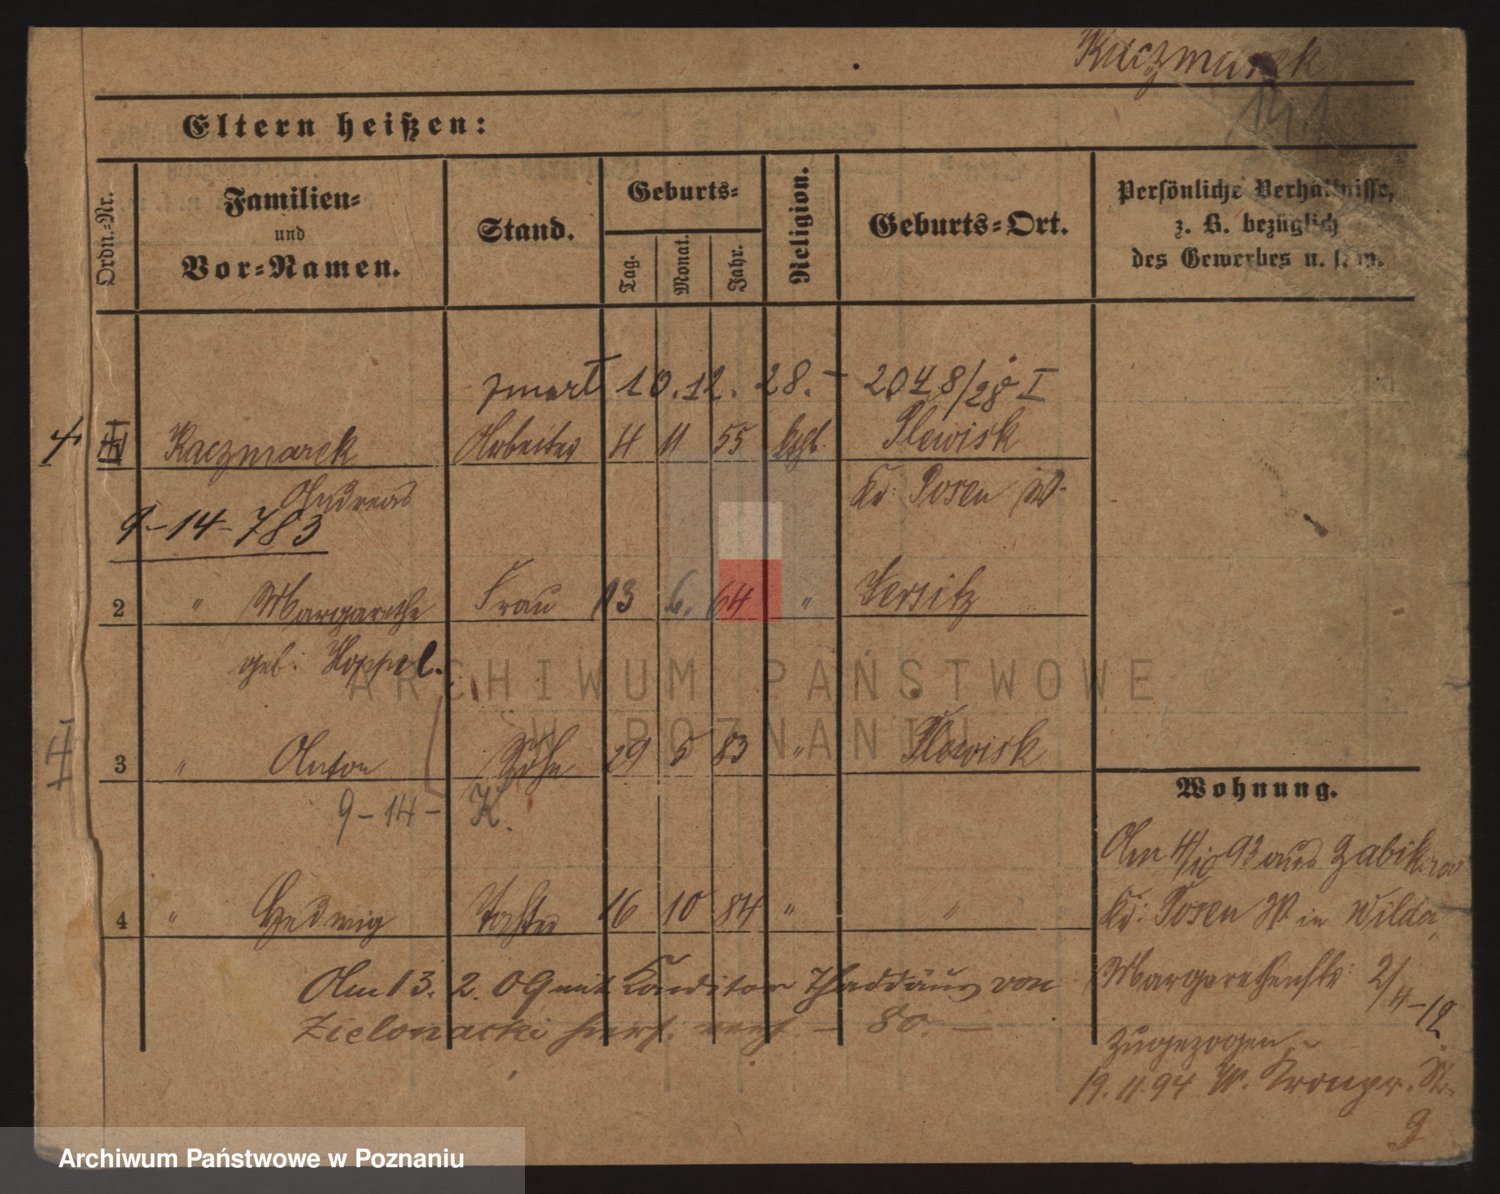 Kaczmarek
141
Eltern heißen:
Ordn.-Nr.
Familien-
und
Vor-Namen.
Stand.
Geburts-
Tag.
Monat.
Jahr.
Religion.
Geburts-Ort.
Persönliche Verhältnisse,
z. B. bezüglich
des Gewerbes u. s. w.
zmarł 10.12.28. – 2048/28 I
Kaczmarek Arbeiter 4 11 55 kath. Plewisk
Andreas Kr. Posen W.
9-14-783
2 " Margarethe Frau 13 6. 64 " Jersitz
geb. Hoppel.
3 " Anton Sohn 29 5 83 " Plewisk
9-14- K.
4 " Hedwig Tochter 16 10 84 " "
Am 13. 2. 09 mit Konditor Thaddäus von
Zielonacki hier verh. – 80. –
Wohnung.
Am 4/10 93 aus Zabikowo
Kr. Posen W. in Wilda,
Margarethenstr. 2/4-12
Zugezogen
19.11.94 W. Kronpr. Str.
9
ARCHIWUM PAŃSTWOWE
W POZNANIU
Archiwum Państwowe w Poznaniu